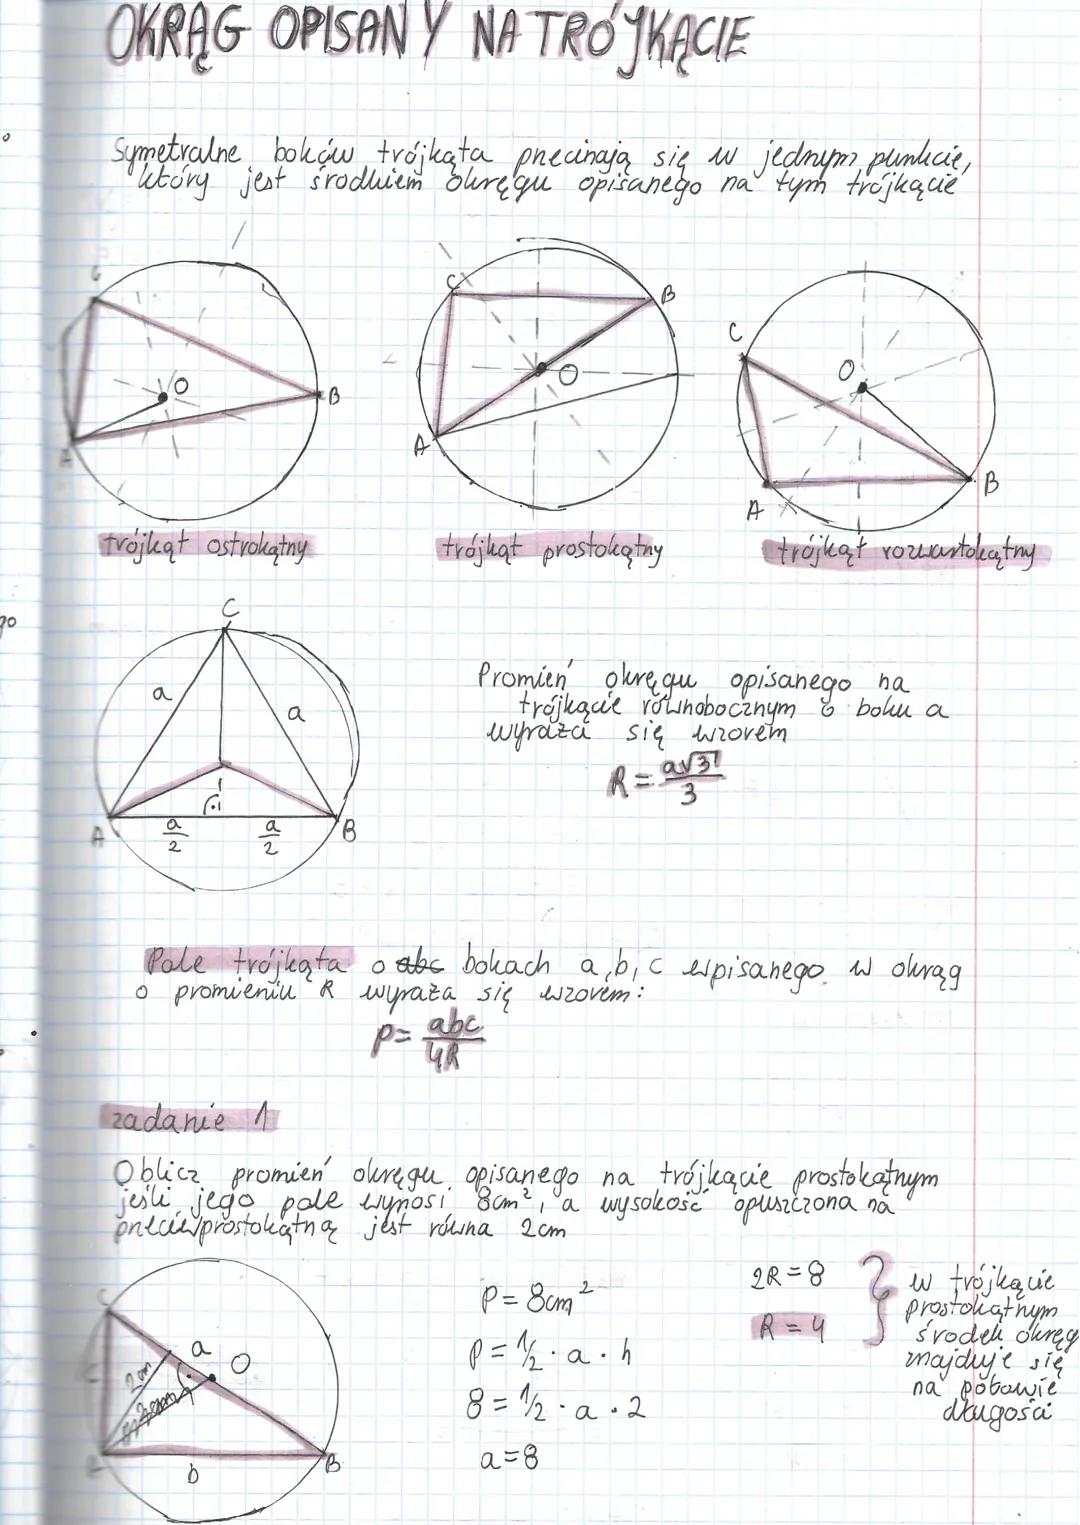 OKRĄG OPISANY NA TRÓJKĄCIE
Symetralne boków trójkąta przecinają się w jednym punkcie,
który jest środkiem okręgu opisanego na tym trójkącie
C
O
B
A
C
B
O
A
C
O
B
A
trójkąt ostrokątny
trójkąt prostokątny
trójkąt rozwartokątny
go
C
a
a
A
a/2
a/2
B
Promień okręgu opisanego na
trójkącie równobocznym o boku a
wyraża się wzorem
R = a√3/3
Pole trójkąta o abc bokach a, b, c wpisanego w okrąg
o promieniu R wyraża się wzorem:
P = abc/4R
zadanie 1
Oblicz promień okręgu opisanego na trójkącie prostokątnym
jeśli jego pole wynosi 8cm², a wysokość opuszczona na
przeciwprostokątną jest równa 2cm
C
a
O
2cm
c
A
b
B
P = 8cm²
P = 1/2 · a · h
8 = 1/2 · a · 2
a = 8
2R = 8
R = 4
w trójkącie
prostokątnym
środek okręg
znajduje się
na połowie
długości